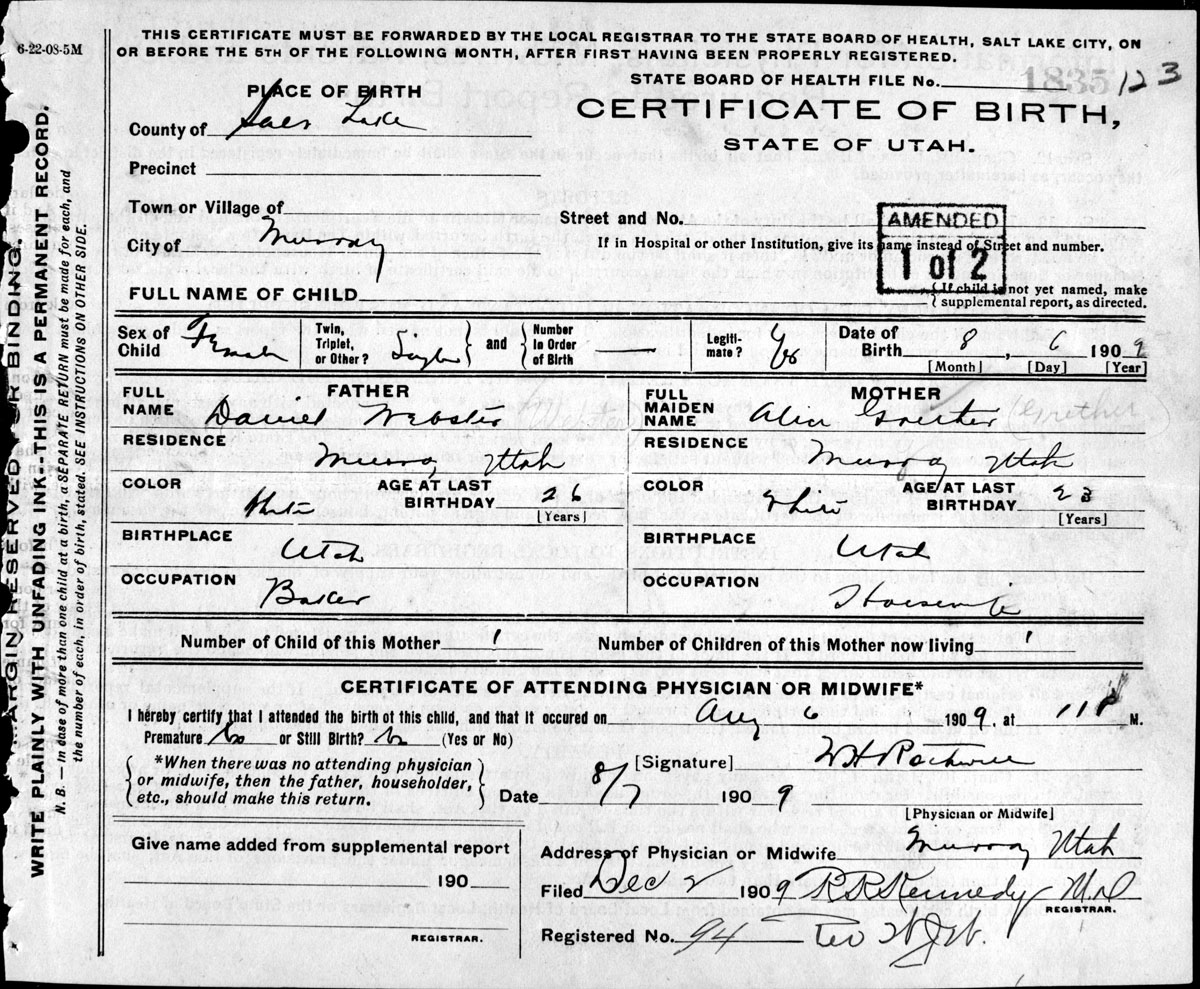 6-22-08-5M
THIS CERTIFICATE MUST BE FORWARDED BY THE LOCAL REGISTRAR TO THE STATE BOARD OF HEALTH, SALT LAKE CITY, ON
OR BEFORE THE 5TH OF THE FOLLOWING MONTH, AFTER FIRST HAVING BEEN PROPERLY REGISTERED.
STATE BOARD OF HEALTH FILE No. 1835 123
PLACE OF BIRTH
CERTIFICATE OF BIRTH,
STATE OF UTAH.
County of Lake
Precinct
Town or Village of
Street and No.
AMENDED
1 of 2
City of Murray
If in Hospital or other Institution, give its name instead of Street and number.
FULL NAME OF CHILD
{ If child is not yet named, make
supplemental report, as directed.
Sex of Child Female
Twin, Triplet, or Other? Single
and
Number In Order of Birth —
Legiti-mate? Yes
Date of Birth 8, 6 1909
[Month] [Day] [Year]
FATHER
FULL NAME Daniel Webster
MOTHER
FULL MAIDEN NAME Alice (Grether
RESIDENCE
Murray Utah
RESIDENCE
Murray Utah
COLOR White
AGE AT LAST BIRTHDAY 26
[Years]
COLOR White
AGE AT LAST BIRTHDAY 23
[Years]
BIRTHPLACE
Utah
BIRTHPLACE
Utah
OCCUPATION
Baker
OCCUPATION
Housewife
Number of Child of this Mother 1
Number of Children of this Mother now living 1
CERTIFICATE OF ATTENDING PHYSICIAN OR MIDWIFE*
I hereby certify that I attended the birth of this child, and that it occured on Aug 6 1909. at 11 P M.
Premature No or Still Birth? No (Yes or No)
*When there was no attending physician
or midwife, then the father, householder,
etc., should make this return.
[Signature] W H Rothwell
Date 8/7 1909
[Physician or Midwife]
Give name added from supplemental report
190
REGISTRAR.
Address of Physician or Midwife Murray Utah
Filed Dec 2 1909 R R Kennedy M.D
REGISTRAR.
Registered No. 94
MARGIN RESERVED FOR BINDING.
WRITE PLAINLY WITH UNFADING INK.—THIS IS A PERMANENT RECORD.
N. B. — In case of more than one child at a birth, a SEPARATE RETURN must be made for each, and
the number of each, in order of birth, stated. SEE INSTRUCTIONS ON OTHER SIDE.